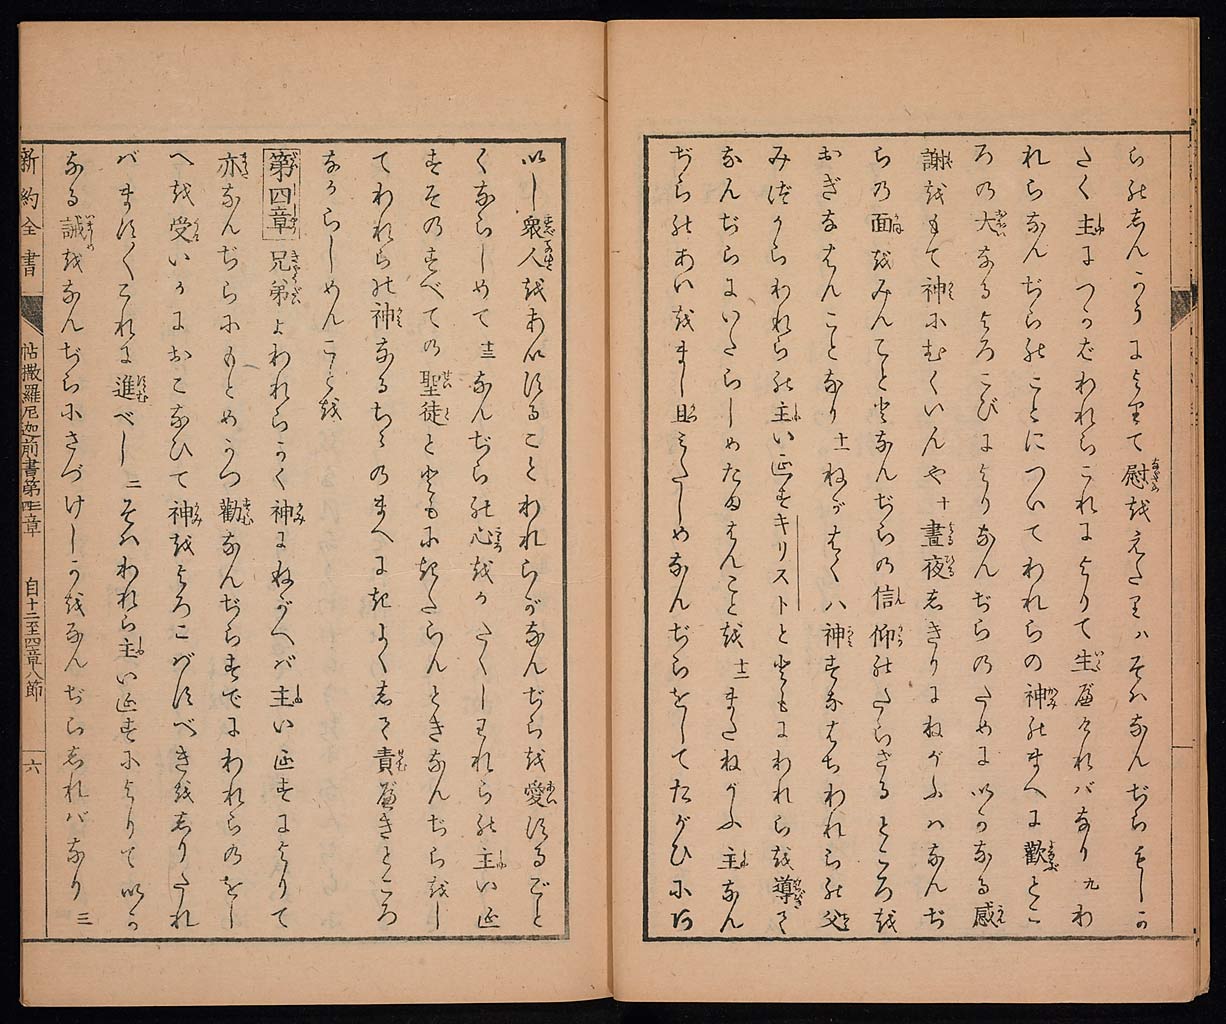 ら能志んかうによりて慰をえたりハそハなんぢらもしか
たく主につかバわれらこれによりて生べけれバなり 九 わ
れらなんぢら能ことについてわれらの神能まへに歡とこ
ろの大なるよろこびによりなんぢらのために以かなる感
謝をもて神にむくいんや 十 晝夜志きりにねがふハなんぢ
らの面をみんこととなんぢらの信仰能たらざるところを
おぎなはんことなり 十一 ねがはくハ神すなはちわれら能父
みづからわれら能主いゑすキリストとともにわれらを導て
なんぢらにいたらしめたまはんことを 十二 またねがふ主なん
ぢら能あいをまし且ゆたしめなんぢらをしてたがひにお
以し衆人をあいすることわれらがなんぢらを愛するごと
くならしめて 十三 なんぢら能心をかたくしわれら能主いゑ
すその すべての聖徒とともにきたらんときなんぢらをし
てわれら能神なるちゝのまへにきよく志て責べきところ
なからしめんことを
第四章 兄弟よわれらかく神にねがへバ主いゑすによりて
亦なんぢらにもとめかつ勸なんぢらすでにわれらのをし
へを受いかにおこなひて神をよろこバすべきを志りたれ
バますますこれに進べし 二 そハわれら主いゑすによりて以か
なる誡をなんぢらにさづけしかをなんぢら志れバなり 三
新約全書 帖撒羅尼迦前書第三四章 自十二至四章八節 六